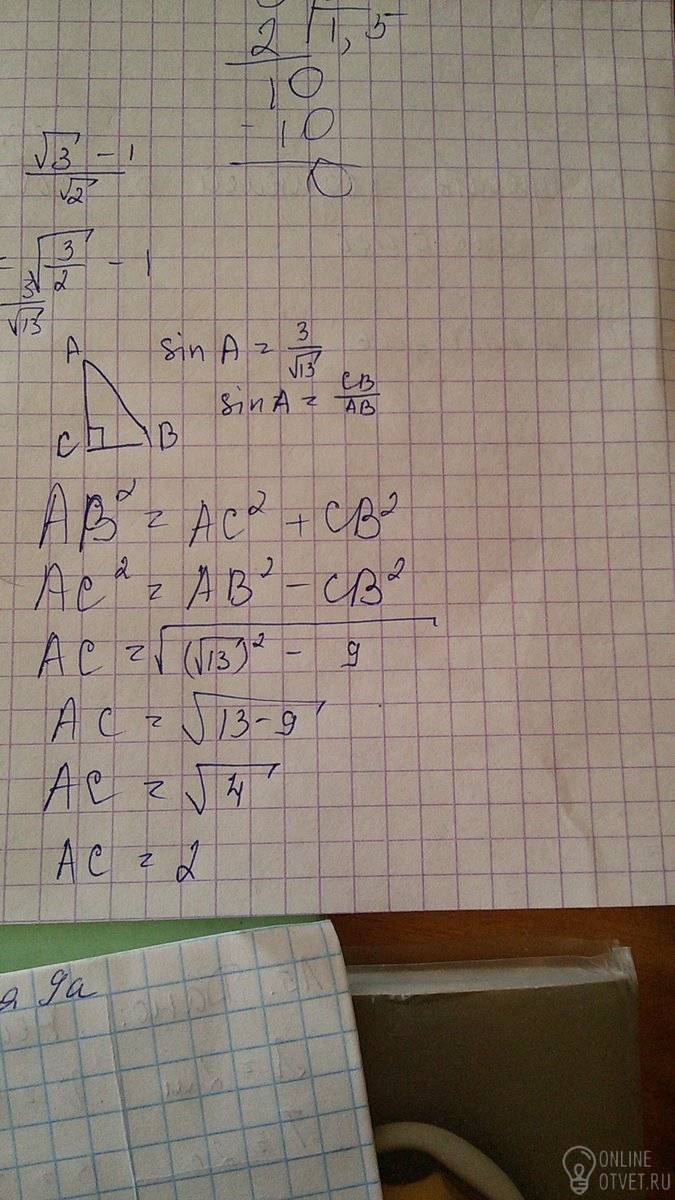 2 1,5
10
- 10
0
√3 - 1
√2
= √3/2 - 1
3/√13
A
sin A = 3/√13
sin A = CB/AB
C B
AB² = AC² + CB²
AC² = AB² - CB²
AC = √(√13)² - 9
AC = √13-9
AC = √4
AC = 2
9a
ONLINE
OTVET.RU